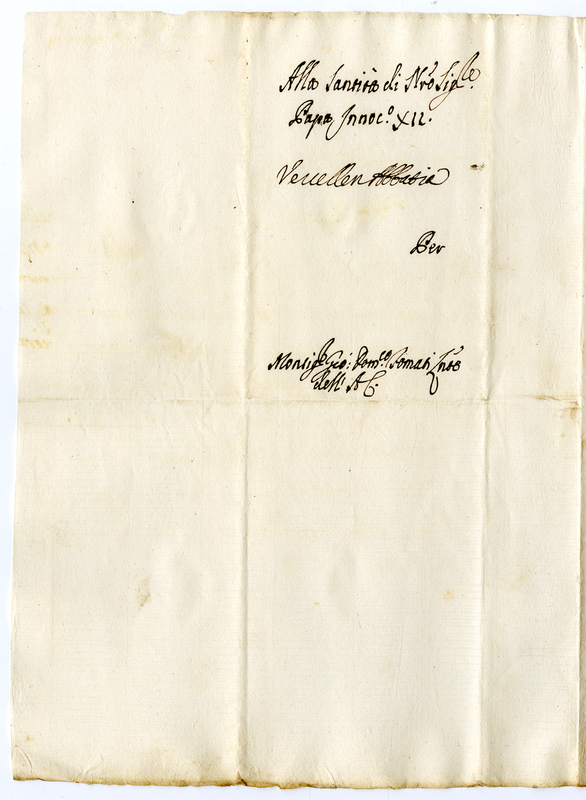 Alla Santità di Nro Sigre.
Papa Innoco. XII.
Vercellen Abbatia
Per
Monsigr Gio: Domco. Tomati
dell' A C.